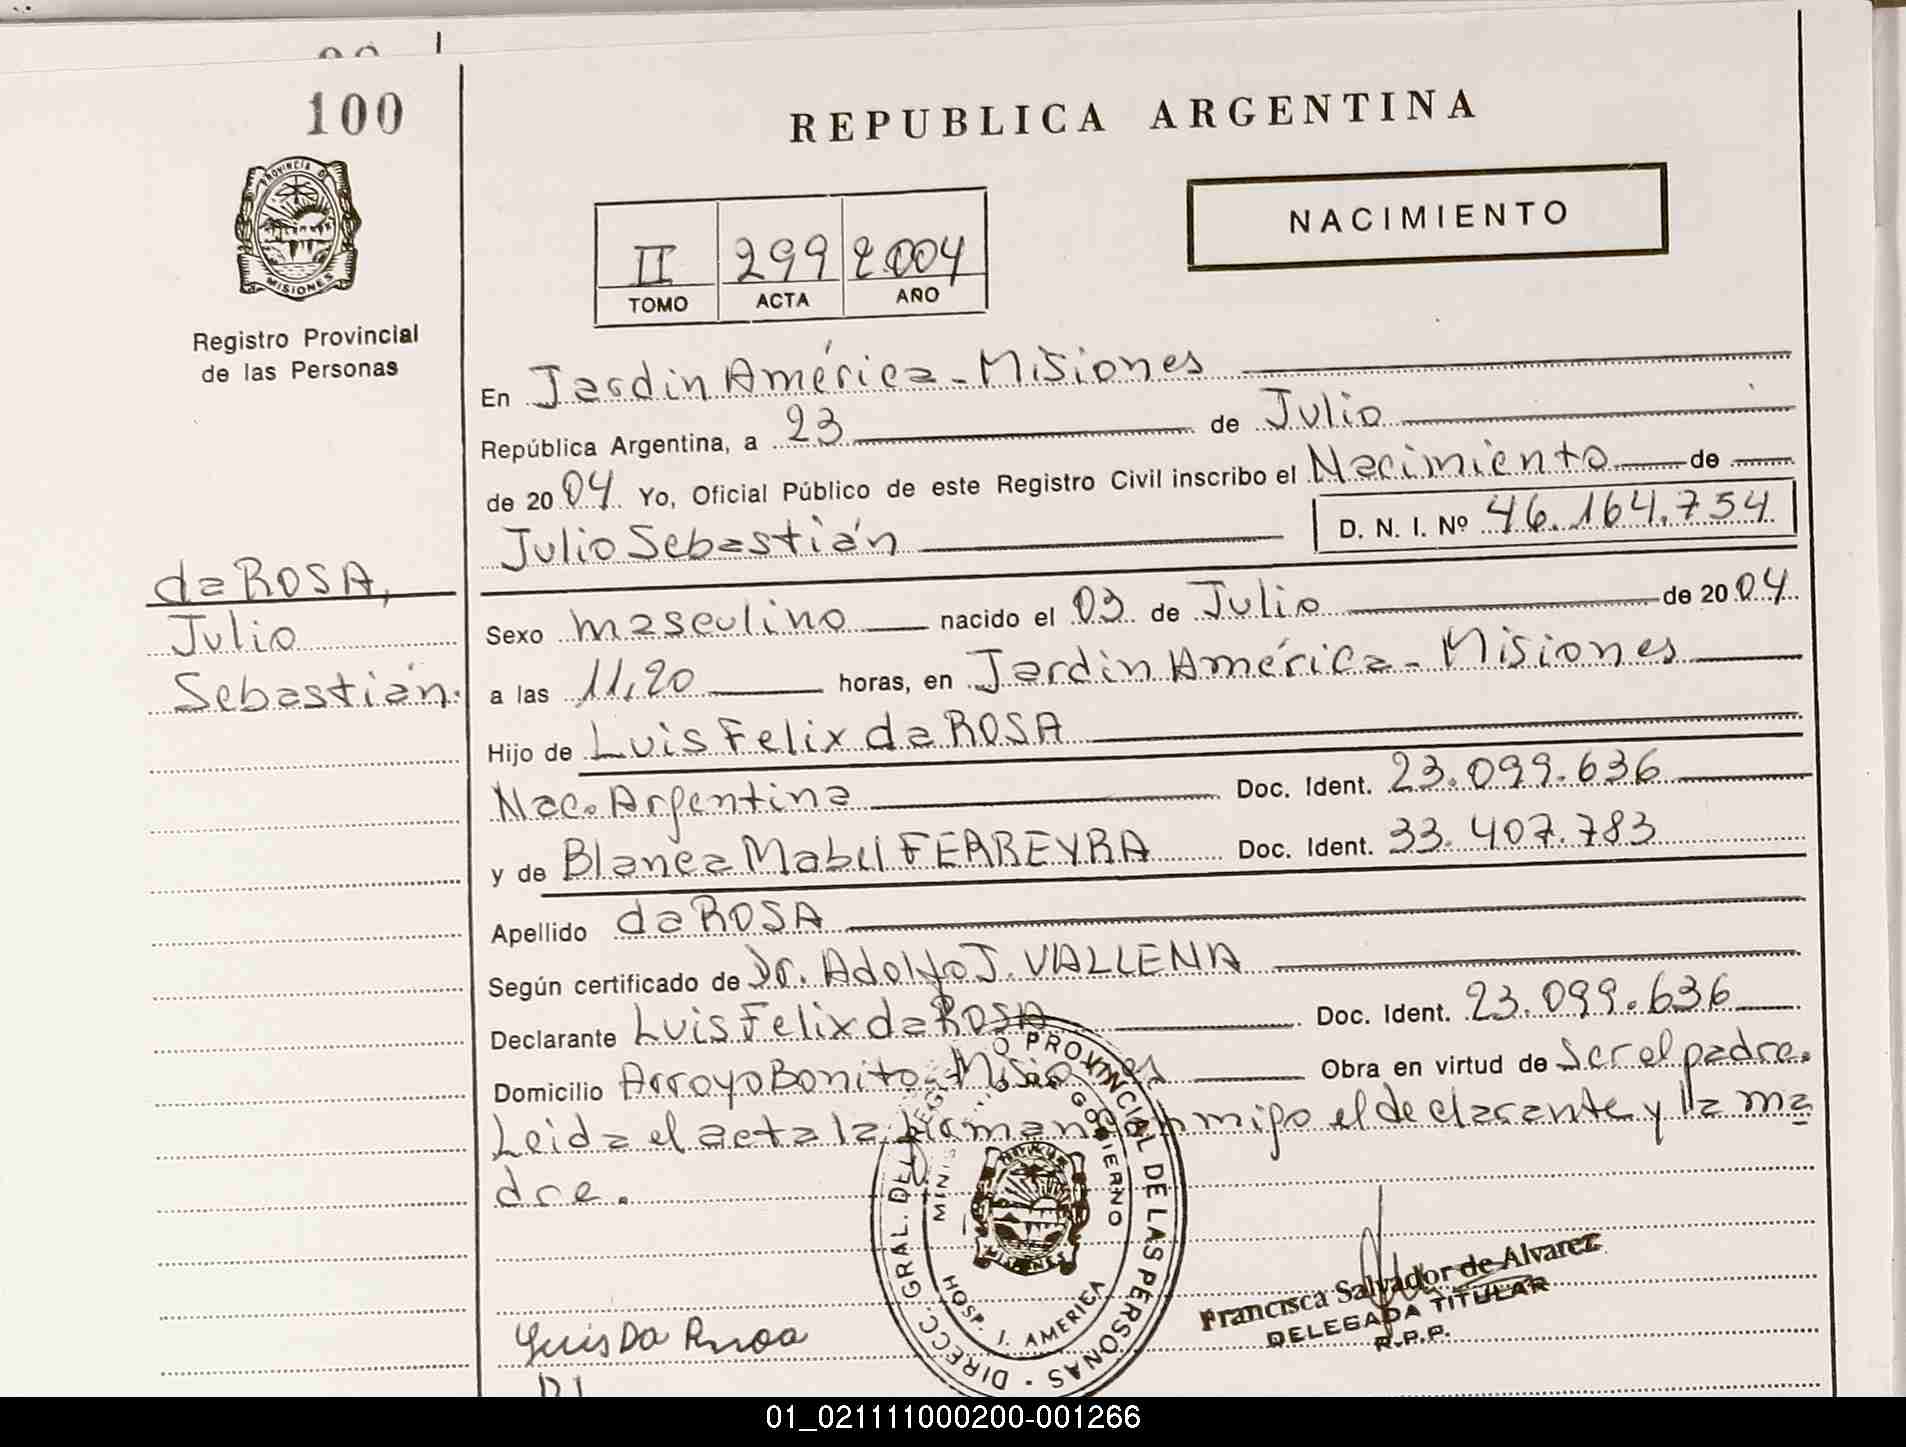 100
REPUBLICA ARGENTINA
PROVINCIA DE
MISIONES
NACIMIENTO
II 299 2.004
TOMO ACTA AÑO
Registro Provincial
de las Personas
En Jardin América - Misiones
República Argentina, a 23 de Julio
de 2004 Yo, Oficial Público de este Registro Civil inscribo el Nacimiento de
Julio Sebastián D. N. I. Nº 46.164.754
da ROSA,
Julio
Sebastián.
Sexo masculino nacido el 03 de Julio de 2004
a las 11,20 horas, en Jardin América - Misiones
Hijo de Luis Felix da ROSA
Nac. Argentina Doc. Ident. 23.099.636
y de Blanca Mabel FERREYRA Doc. Ident. 33.407.783
Apellido da ROSA
Según certificado de Dr. Adolfo J. VALLENA
Declarante Luis Felix da ROSA Doc. Ident. 23.099.636
Domicilio Arroyo Bonito - Misiones Obra en virtud de ser el padre.
Leida el acta la firman conmigo el declarante y la ma
dre.
DIRECC. GRAL. DEL REGISTRO PROVINCIAL DE LAS PERSONAS
MINISTERIO DE GOBIERNO
HOSP. J. AMERICA
Francisca Salvador de Alvarez
DELEGADA TITULAR
R.P.P.
Luis Da Rosa
01_021111000200-001266